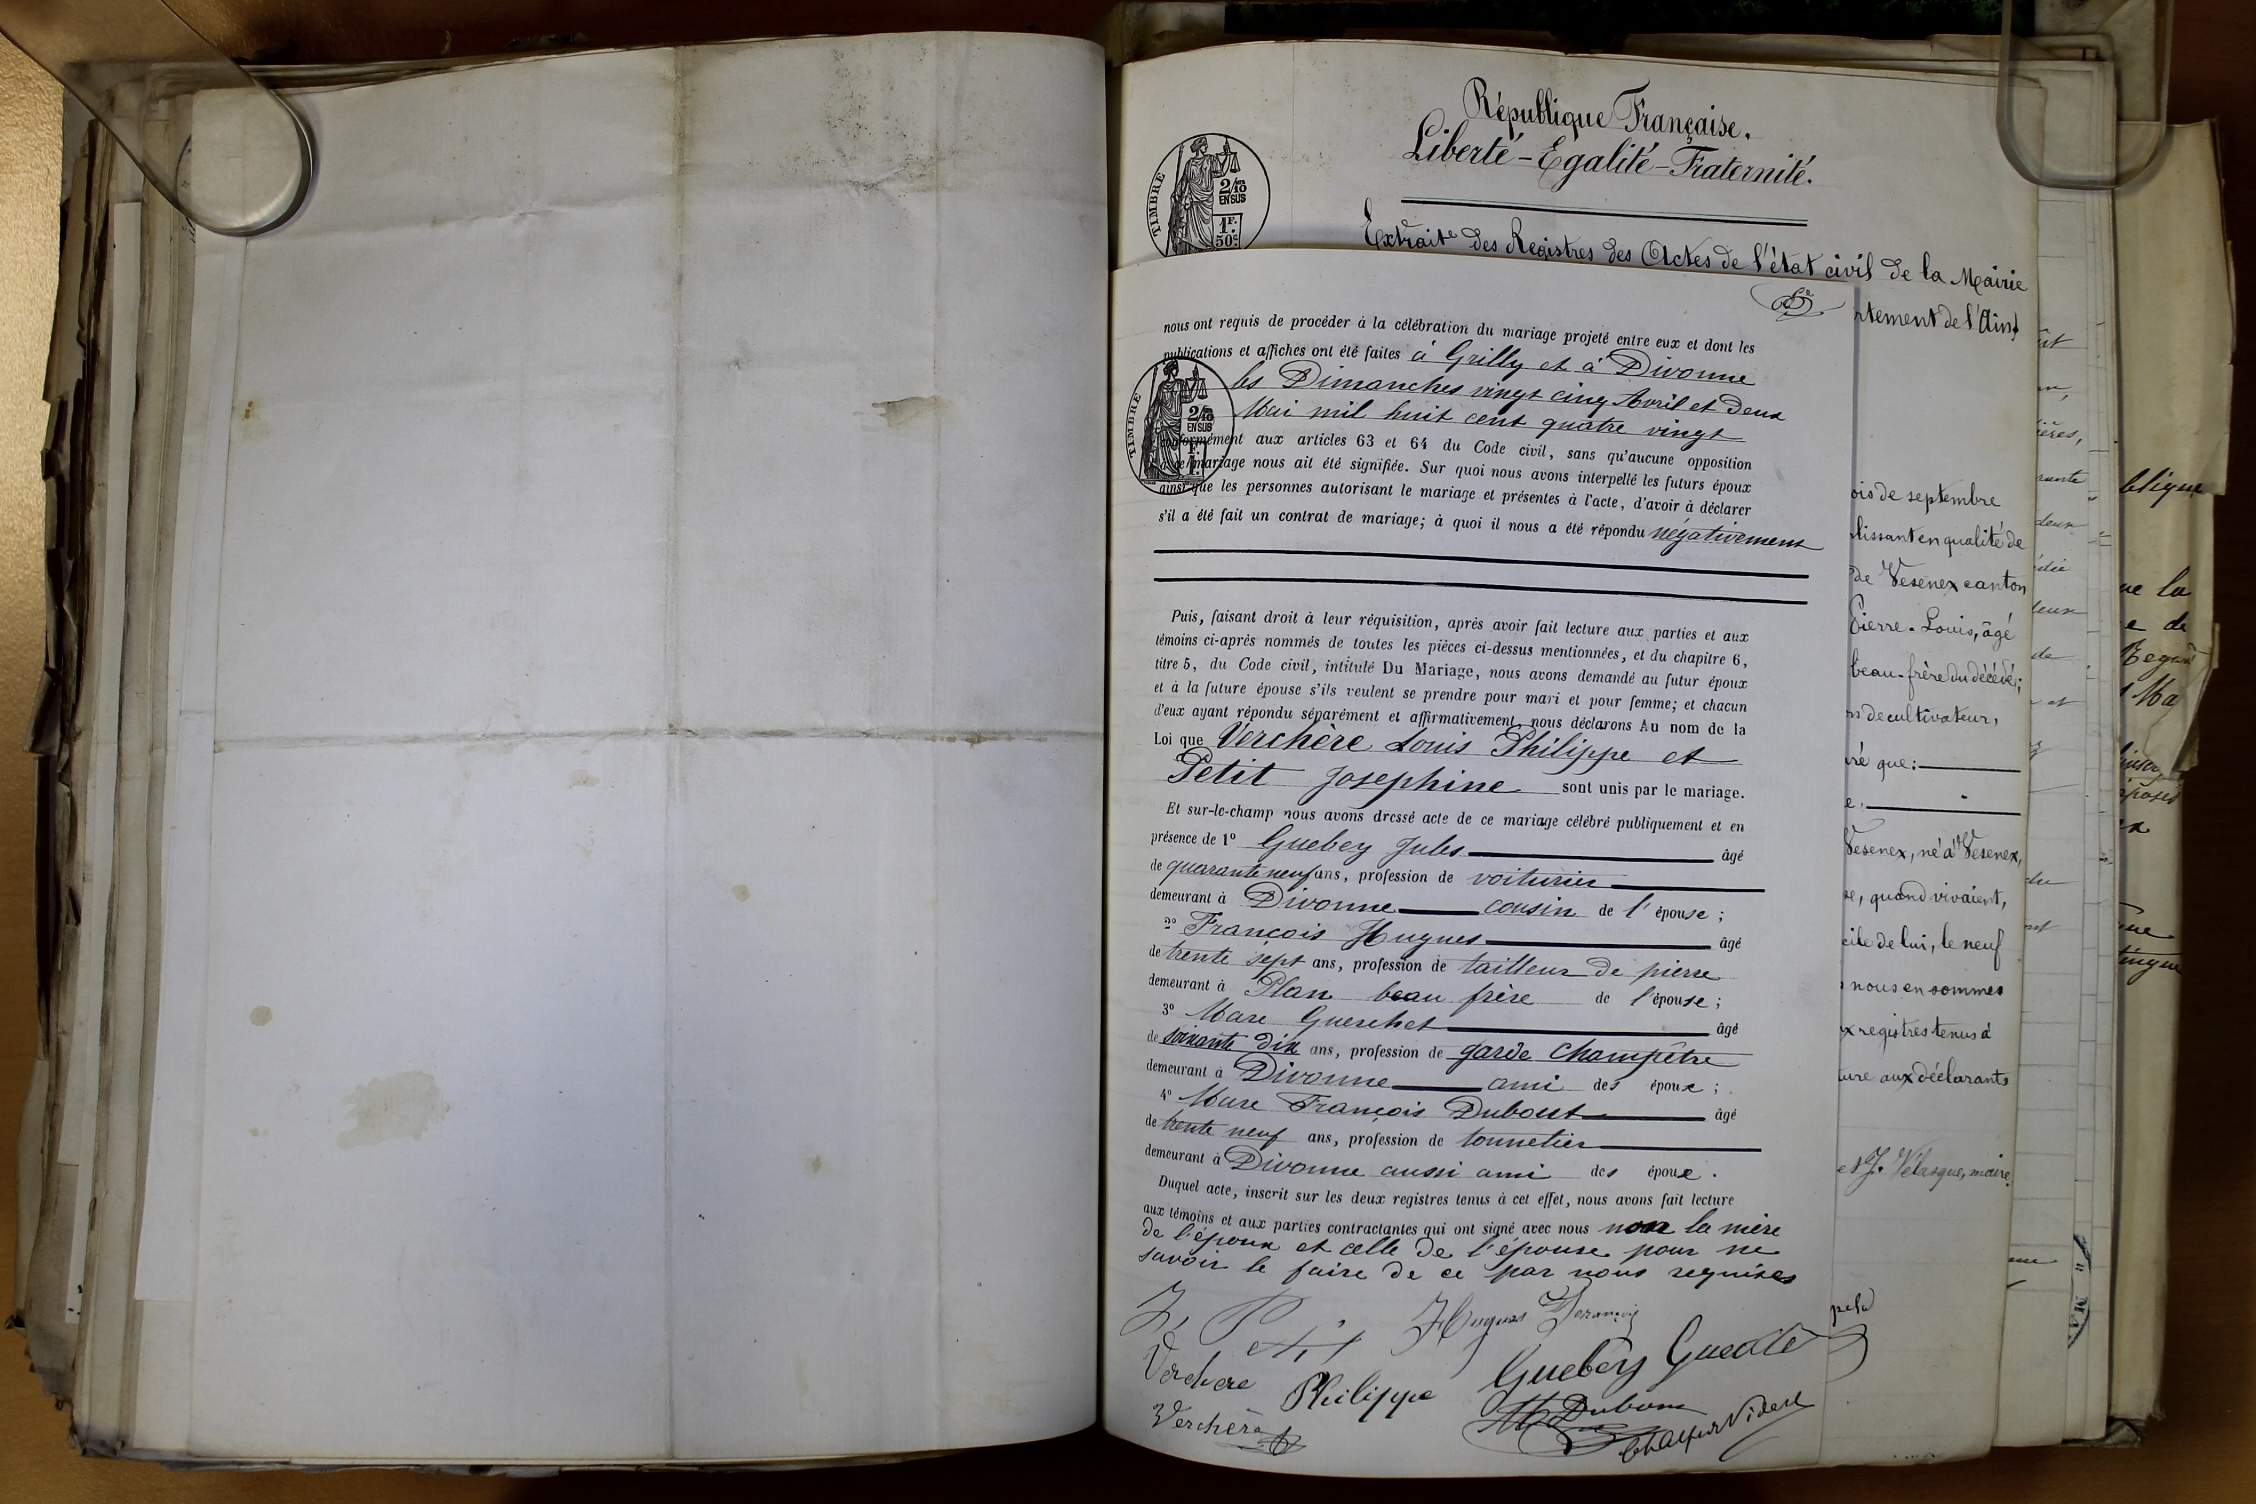 République Française.
Liberté - Égalité - Fraternité.
TIMBRE
2/10
EN SUS
1F.
50c
Extrait des Registres des Actes de l'état civil de la Mairie
rtement de l'Ain)
nous ont requis de procéder à la célébration du mariage projeté entre eux et dont les
publications et affiches ont été faites à Grilly et à Divonne
les Dimanches vingt cinq Avril et deux
Mai mil huit cent quatre vingt
TIMBRE
2/10
EN SUS
conformément aux articles 63 et 64 du Code civil, sans qu'aucune opposition
à ce mariage nous ait été signifiée. Sur quoi nous avons interpellé les futurs époux
ainsi que les personnes autorisant le mariage et présentes à l'acte, d'avoir à déclarer
s'il a été fait un contrat de mariage; à quoi il nous a été répondu négativement
Puis, faisant droit à leur réquisition, après avoir fait lecture aux parties et aux
témoins ci-après nommés de toutes les pièces ci-dessus mentionnées, et du chapitre 6,
titre 5, du Code civil, intitulé Du Mariage, nous avons demandé au futur époux
et à la future épouse s'ils veulent se prendre pour mari et pour femme; et chacun
d'eux ayant répondu séparément et affirmativement, nous déclarons Au nom de la
Loi que Verchère Louis Philippe et
Petit Josephine sont unis par le mariage.
Et sur-le-champ nous avons dressé acte de ce mariage célébré publiquement et en
présence de 1º Guebey Jules âgé
de quarante neuf ans, profession de voiturier
demeurant à Divonne cousin de l'épouse;
2º François Hugues âgé
de trente sept ans, profession de tailleur de pierre
demeurant à Plan beau frère de l'épouse;
3º Marc Guerchet âgé
de soixante dix ans, profession de garde champêtre
demeurant à Divonne ami des époux;
4º Marc François Dubout âgé
de trente neuf ans, profession de tonnelier
demeurant à Divonne aussi ami des époux.
Duquel acte, inscrit sur les deux registres tenus à cet effet, nous avons fait lecture
aux témoins et aux parties contractantes qui ont signé avec nous non la mère
de l'époux et celle de l'épouse pour ne
savoir le faire de ce par nous requises
Petit Hugues François
Verchere Philippe Guebey
Verchère
ois de septembre
lissant en qualité de
de Vesenex canton
Pierre-Louis, âgé
beau-frère du décédé;
de cultivateur,
ré que:
Vesenex, né à Vesenex,
, quand vivaient,
cile de lui, le neuf
nous en sommes
x registres tenus à
ture aux déclarants
et J. Vélasque, maire.